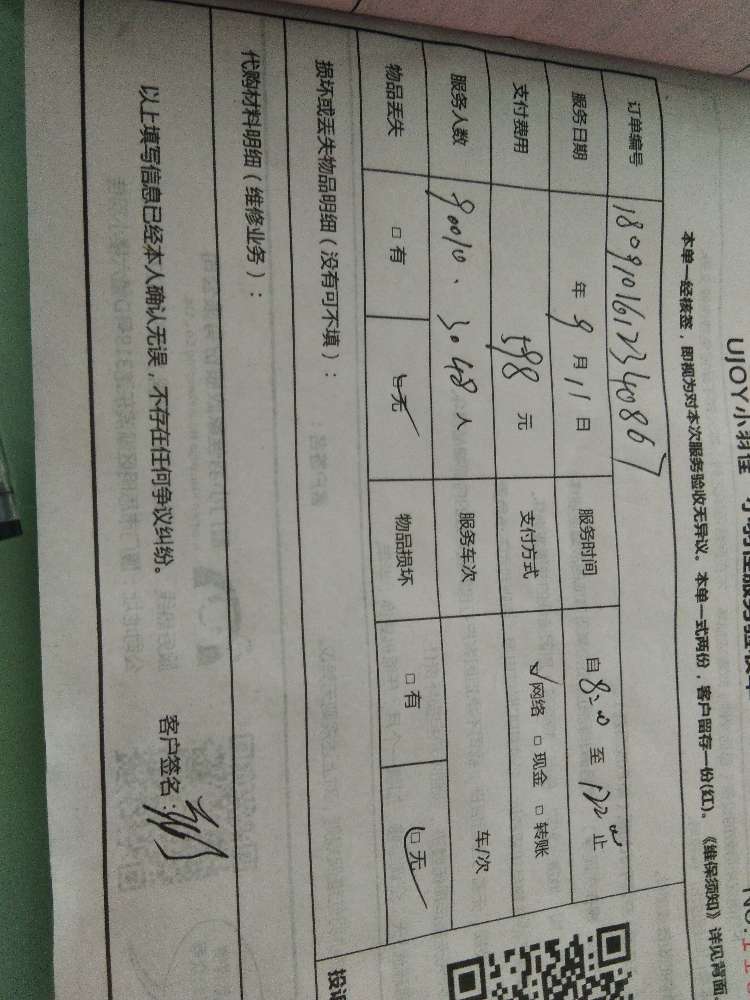 UJOY小羽佳
本单一经核签，即视为对本次服务验收无异议。本单一式两份，客户留存一份(红)。《维保须知》详见背面。
订单编号 1809101612340867
服务日期 年 9 月 11 日 服务时间 自 8:00 至 12:00 止
支付费用 598 元 支付方式 ☑网络 □现金 □转账
服务人数 90010、3048 人 服务车次 车/次
物品丢失 □有 ☑无 物品损坏 □有 ☑无
损坏或丢失物品明细（没有可不填）：
代购材料明细（维修业务）：
以上填写信息已经本人确认无误，不存在任何争议纠纷。
客户签名：
投诉